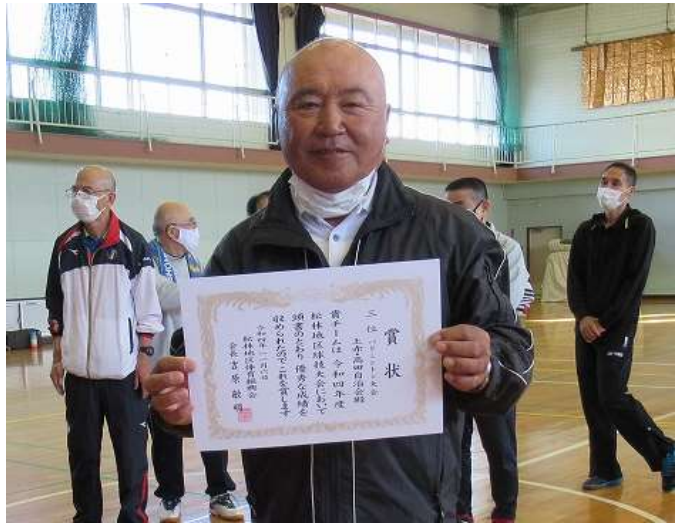 賞状
三位 バドミントン大会
上赤・高田自治会殿
貴チームは 令和四年度
松林地区球技大会において
頭書のとおり 優秀な成績を
収められたのでこれを賞します
令和四年十一月六日
松林地区体育振興会
会長 吉原敏明